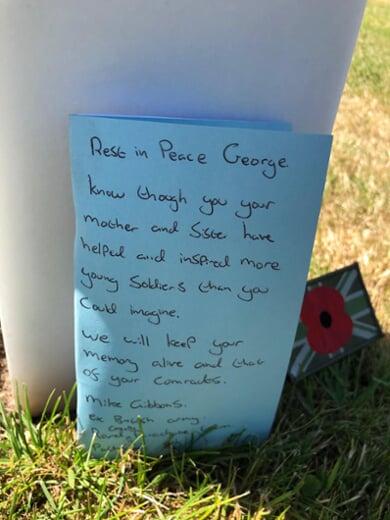 Rest in Peace George.
know though you your
mother and Siste have
helped and inspired more
young Soldiers than you
Could imagine.
we will keep your
memory alive and that
of your Comrades.
Mike Gibbons.
ex British army.